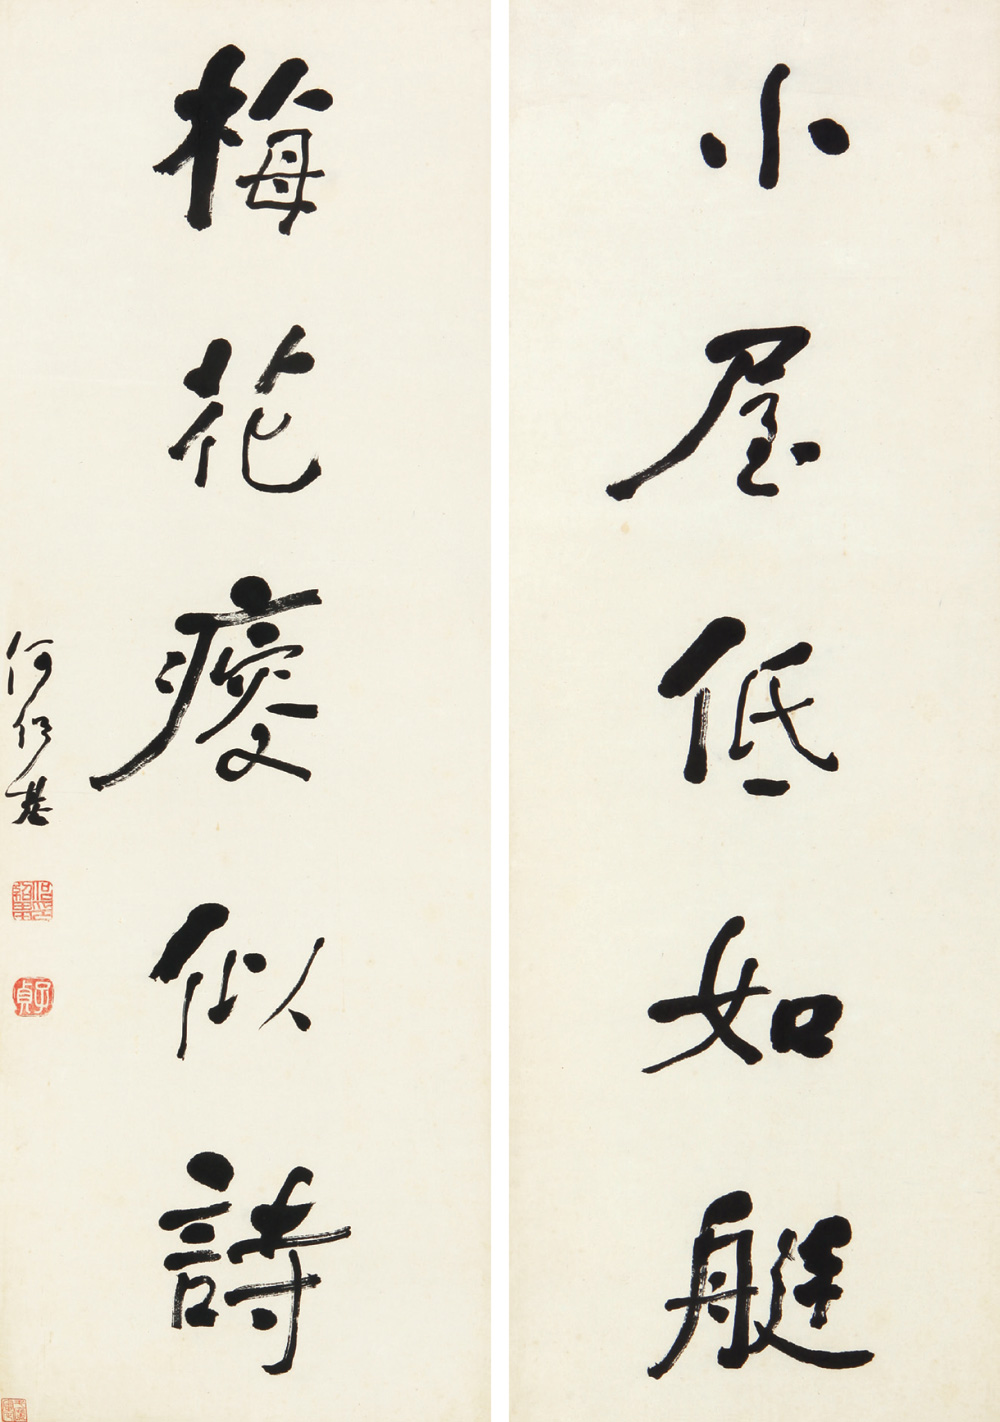 小屋低如艇
梅花瘦似詩
何紹基
子貞